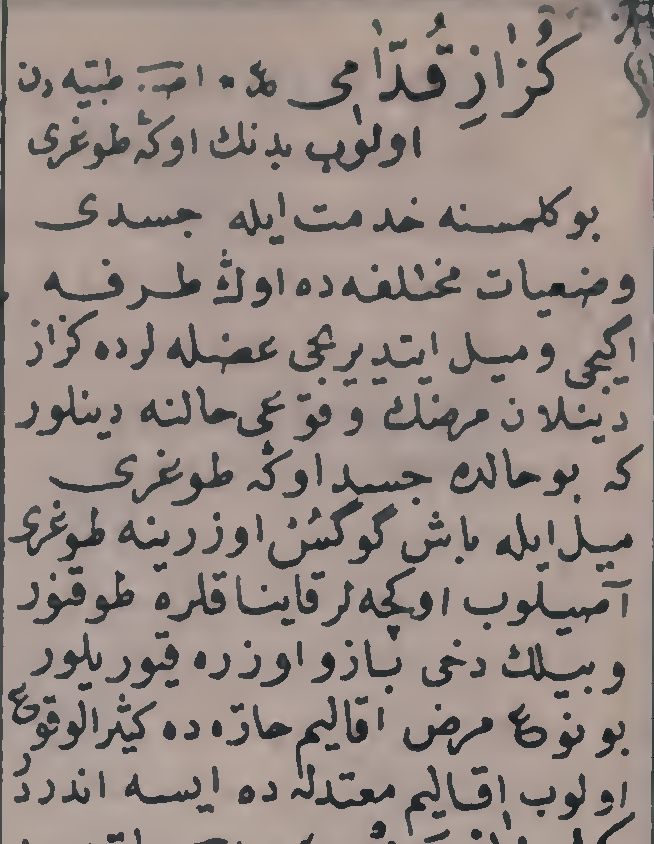 كُزازِ قُدّامی عم۰ اص: طبّیه دن
اولوب بدنك اوڭه طوغری
بوكلمسنه خدمت ایله جسدی
وضعیات مختلفه ده اوڭ طرفه
اكیجی ومیل ایتدیریجی عضله لرده كزاز
دینلان مرضڭ وقوعی حالنه دینلور
كه بوحالده جسد اوڭه طوغری
میل ایله باش گوكسُ اوزرینه طوغری
آصیلوب اوكچه لر قایناقلره طوقنور
وبیلك دخی بازو اوزره قیوریلور
بو نوع مرض اقالیم حارّه ده كثیرالوقوع
اولوب اقالیم معتدله ده ایسه اندردُر